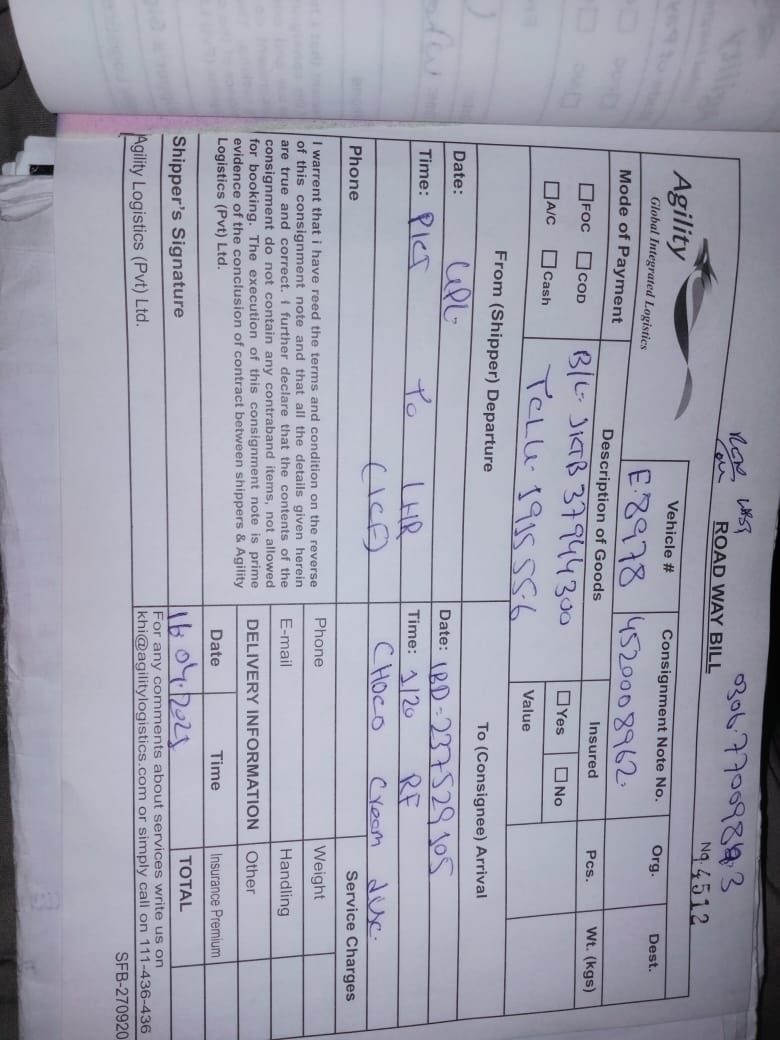 0306-77009843
ROAD WAY BILL
No. 4512
Agility
Global Integrated Logistics
Vehicle #
E-8978
Consignment Note No.
4520008962
Org.
Dest.
Mode of Payment
FOC COD
A/C Cash
Description of Goods
B/L- JKTB 37944300
TCLU- 1915556
Insured
Yes No
Value
Pcs.
Wt. (kgs)
From (Shipper) Departure
Date: UPL
Time: PICT To LHR
(ICF)
Phone
To (Consignee) Arrival
Date: IBD-237529105
Time: 1/20 RF
CHOCO Cream disc.
I warrent that i have reed the terms and condition on the reverse
of this consignment note and that all the details given herein
are true and correct. I further declare that the contents of the
consignment do not contain any contraband items, not allowed
for booking. The execution of this consignment note is prime
evidence of the conclusion of contract between shippers & Agility
Logistics (Pvt) Ltd.
Phone
E-mail
DELIVERY INFORMATION
Date Time
16 04.2021
Service Charges
Weight
Handling
Other
Insurance Premium
TOTAL
Shipper's Signature
Agility Logistics (Pvt) Ltd.
For any comments about services write us on
khi@agilitylogistics.com or simply call on 111-436-436
SFB-270920